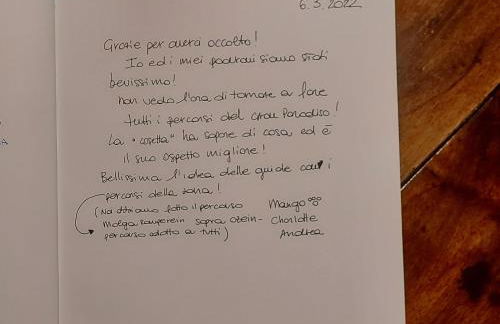 6.3.2022
Grazie per averci accolto!
Io ed i miei padroni siamo stati
benissimo!
Non vedo l'ora di tornare a fare
tutti i percorsi del Gran Paradiso!
La "casetta" ha sapore di casa, ed è
il suo aspetto migliore!
Bellissima l'idea delle guide con i
percorsi della zona!
(Noi abbiamo fatto il percorso Mango
sopra Ozein - Charlotte
percorso adatto a tutti) Andrea